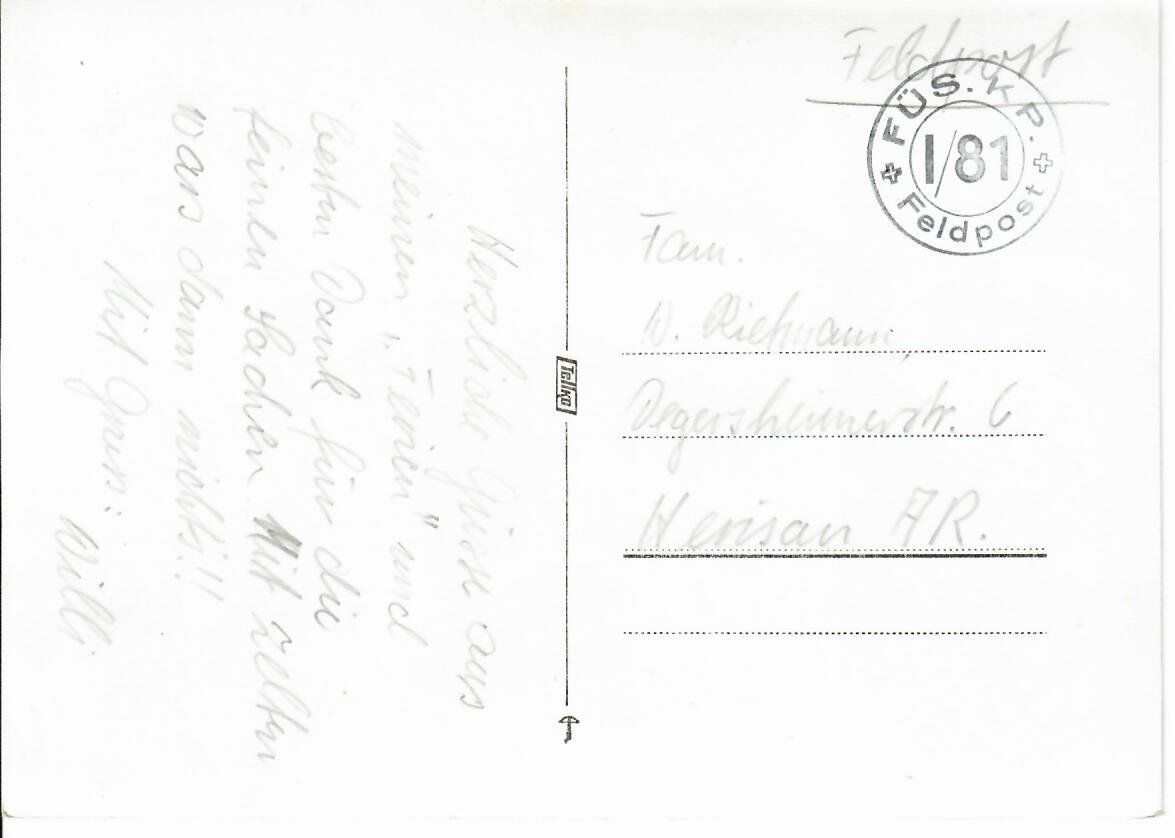 Feldpost
FÜS. KP.
I/81
Feldpost
Fam.
W. Riefmann,
Degersheimerstr. 6
Herisau AR.
Tellko
Herzliche Grüsse aus
meinen „Ferien" und
besten Dank für die
feinen Sachen. Mit zelten
wars dann nichts!!
Mit Gruss: Willi